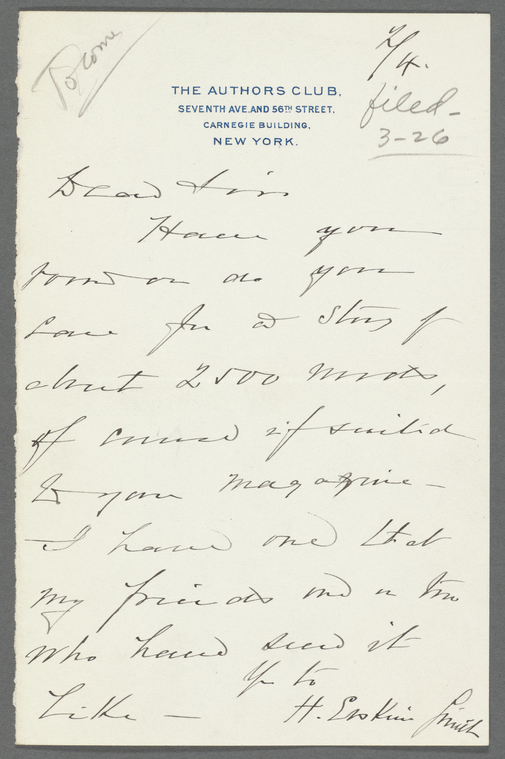 To come
2/4.
filed -
3-26
THE AUTHORS CLUB,
SEVENTH AVE. AND 56TH STREET.
CARNEGIE BUILDING,
NEW YORK.
Dear Sir
Have you
room or do you
care for a story of
about 2500 words,
of course if suited
to your magazine -
I have one that
my friends one or two
who have seen it
like -
Yrs to
H. Erskine Smith